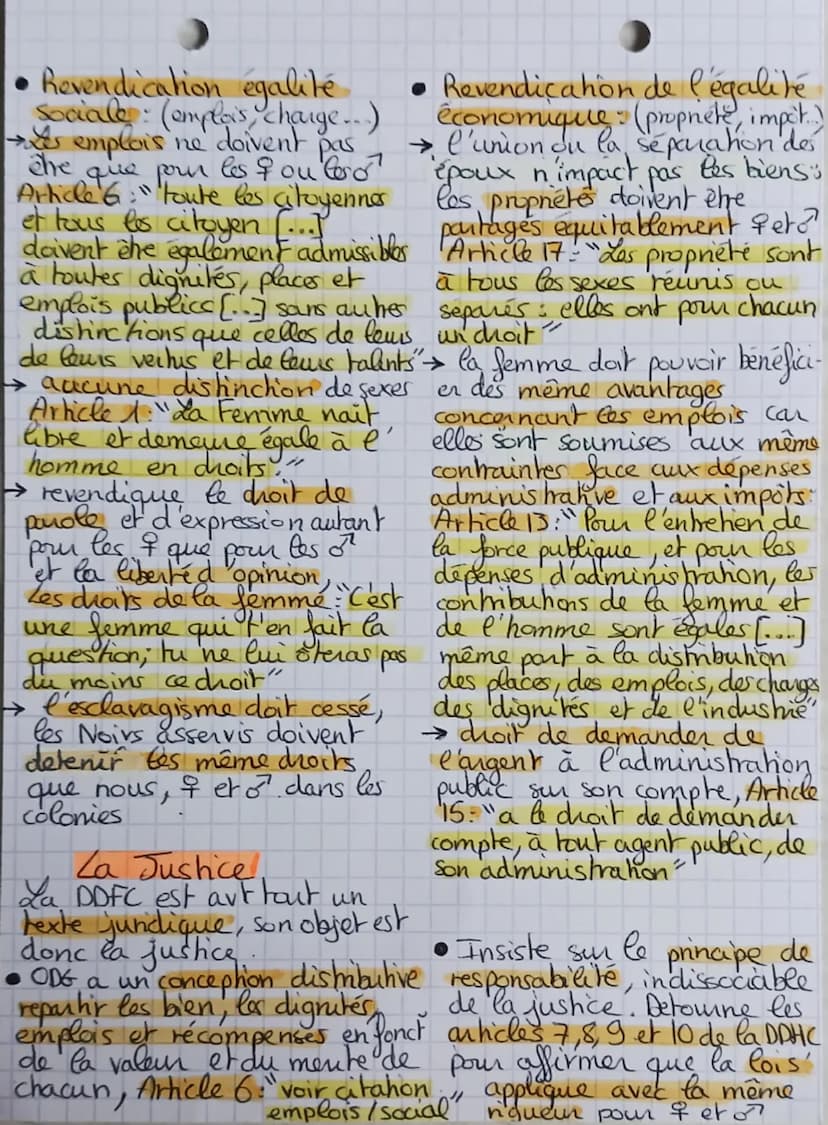 • Revendication égalité
sociale : (emplois, charge...)
→ Les emplois ne doivent pas
être que pour les ♀ ou les ♂
Article 6 : "toute les citoyennes
et tous les citoyen [...]
doivent être également admissibles
à toutes dignités, places et
emplois publics [...] sans autres
distinctions que celles de leurs
de leurs vertus et de leurs talents"
→ aucune distinction de sexes
Article 1 : "La Femme nait
libre et demeure égale à l'
homme en droits."
→ revendique le droit de
parole et d'expression autant
pour les ♀ que pour les ♂
et la liberté d'opinion,
Les droits de la femme : "C'est
une femme qui t'en fait la
question; tu ne lui ôteras pas
du moins ce droit"
→ l'esclavagisme doit cessé,
les Noirs asservis doivent
detenir les même droits
que nous, ♀ et ♂ dans les
colonies
La Justice
La DDFC est avt tout un
texte juridique, son objet est
donc la justice.
• ODG a un conception distributive
repartir les bien, les dignités,
emplois et récompenses en fonct°
de la valeur et du merite de
chacun, Article 6 : "voir citation
emplois / social"
• Revendication de l'égalité
économique : (propriété, impôt..)
→ l'union ou la séparation des
époux n'impact pas les biens :
les propriétés doivent être
partagés équitablement ♀ et ♂
Article 17 : "Les propriété sont
à tous les sexes réunis ou
séparés : elles ont pour chacun
un droit"
→ la femme doit pouvoir bénéfici-
er des même avantages
concernant les emplois car
elles sont soumises aux même
contraintes face aux dépenses
administrative et aux impôts :
Article 13 : "Pour l'entretien de
la force publique, et pour les
dépenses d'administration, les
contributions de la femme et
de l'homme sont égales [...]
même part à la distribution
des places, des emplois, des charges
des dignités et de l'industrie"
→ droit de demander de
l'argent à l'administration
public sur son compte, Article
15 : "a le droit de demander
compte, à tout agent public, de
son administration"
• Insiste sur le principe de
responsabilité, indissociable
de la justice. Detourne les
articles 7, 8, 9 et 10 de la DDHC
pour affirmer que la lois s'
applique avec la même
rigueur pour ♀ et ♂